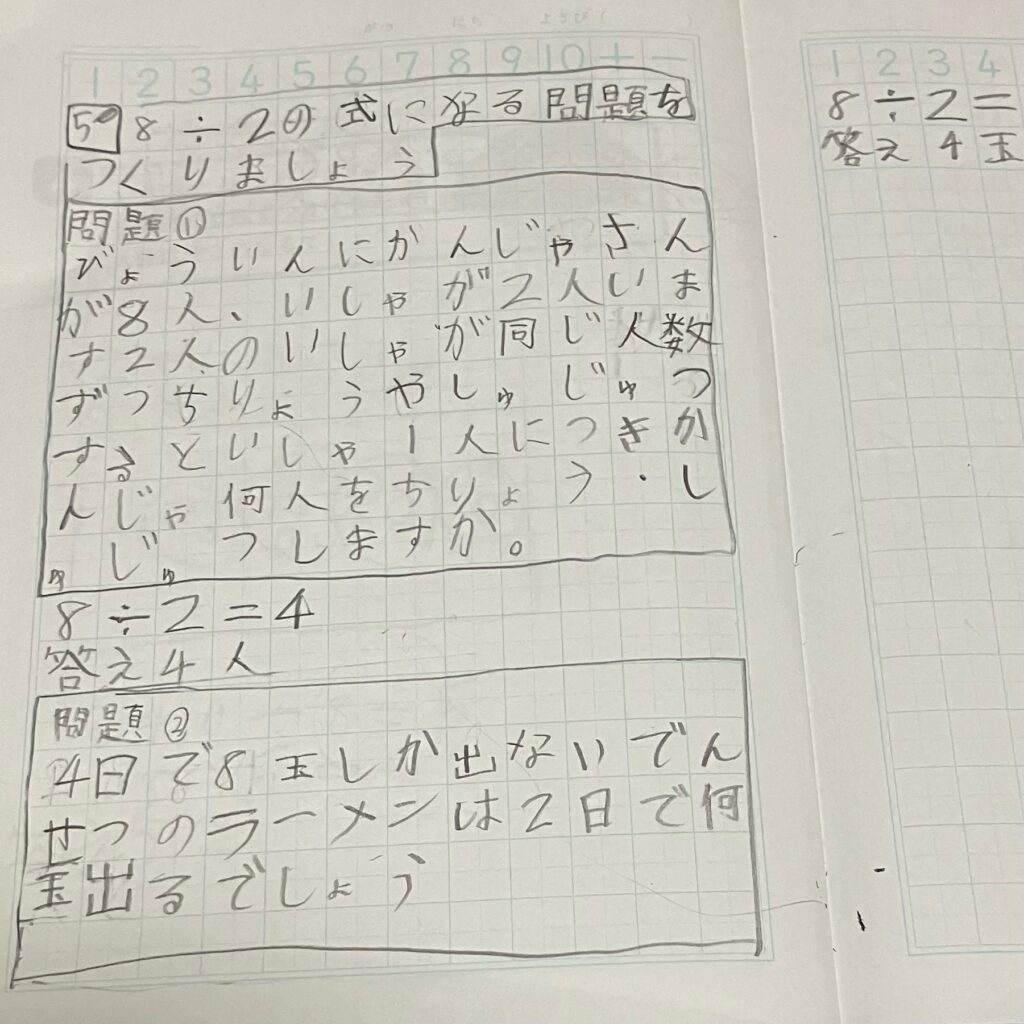 がつ にち ようび( )
1 2 3 4 5 6 7 8 9 10 + -
5° 8÷2の式になる問題を
つくりましょう
問題①
びょういんにかんじゃさん
が8人、いしゃが2人いま
す2人のいしゃが同じ人数
ずつちりょうやしゅじゅつ
するといしゃ1人につきか
んじゃ何人をちりょう・し
ゅじゅつしますか。
8÷2=4
答え4人
問題②
4日で8玉しか出ないでん
せつのラーメンは2日で何
玉出るでしょう
1 2 3 4
8÷2=
答え4玉